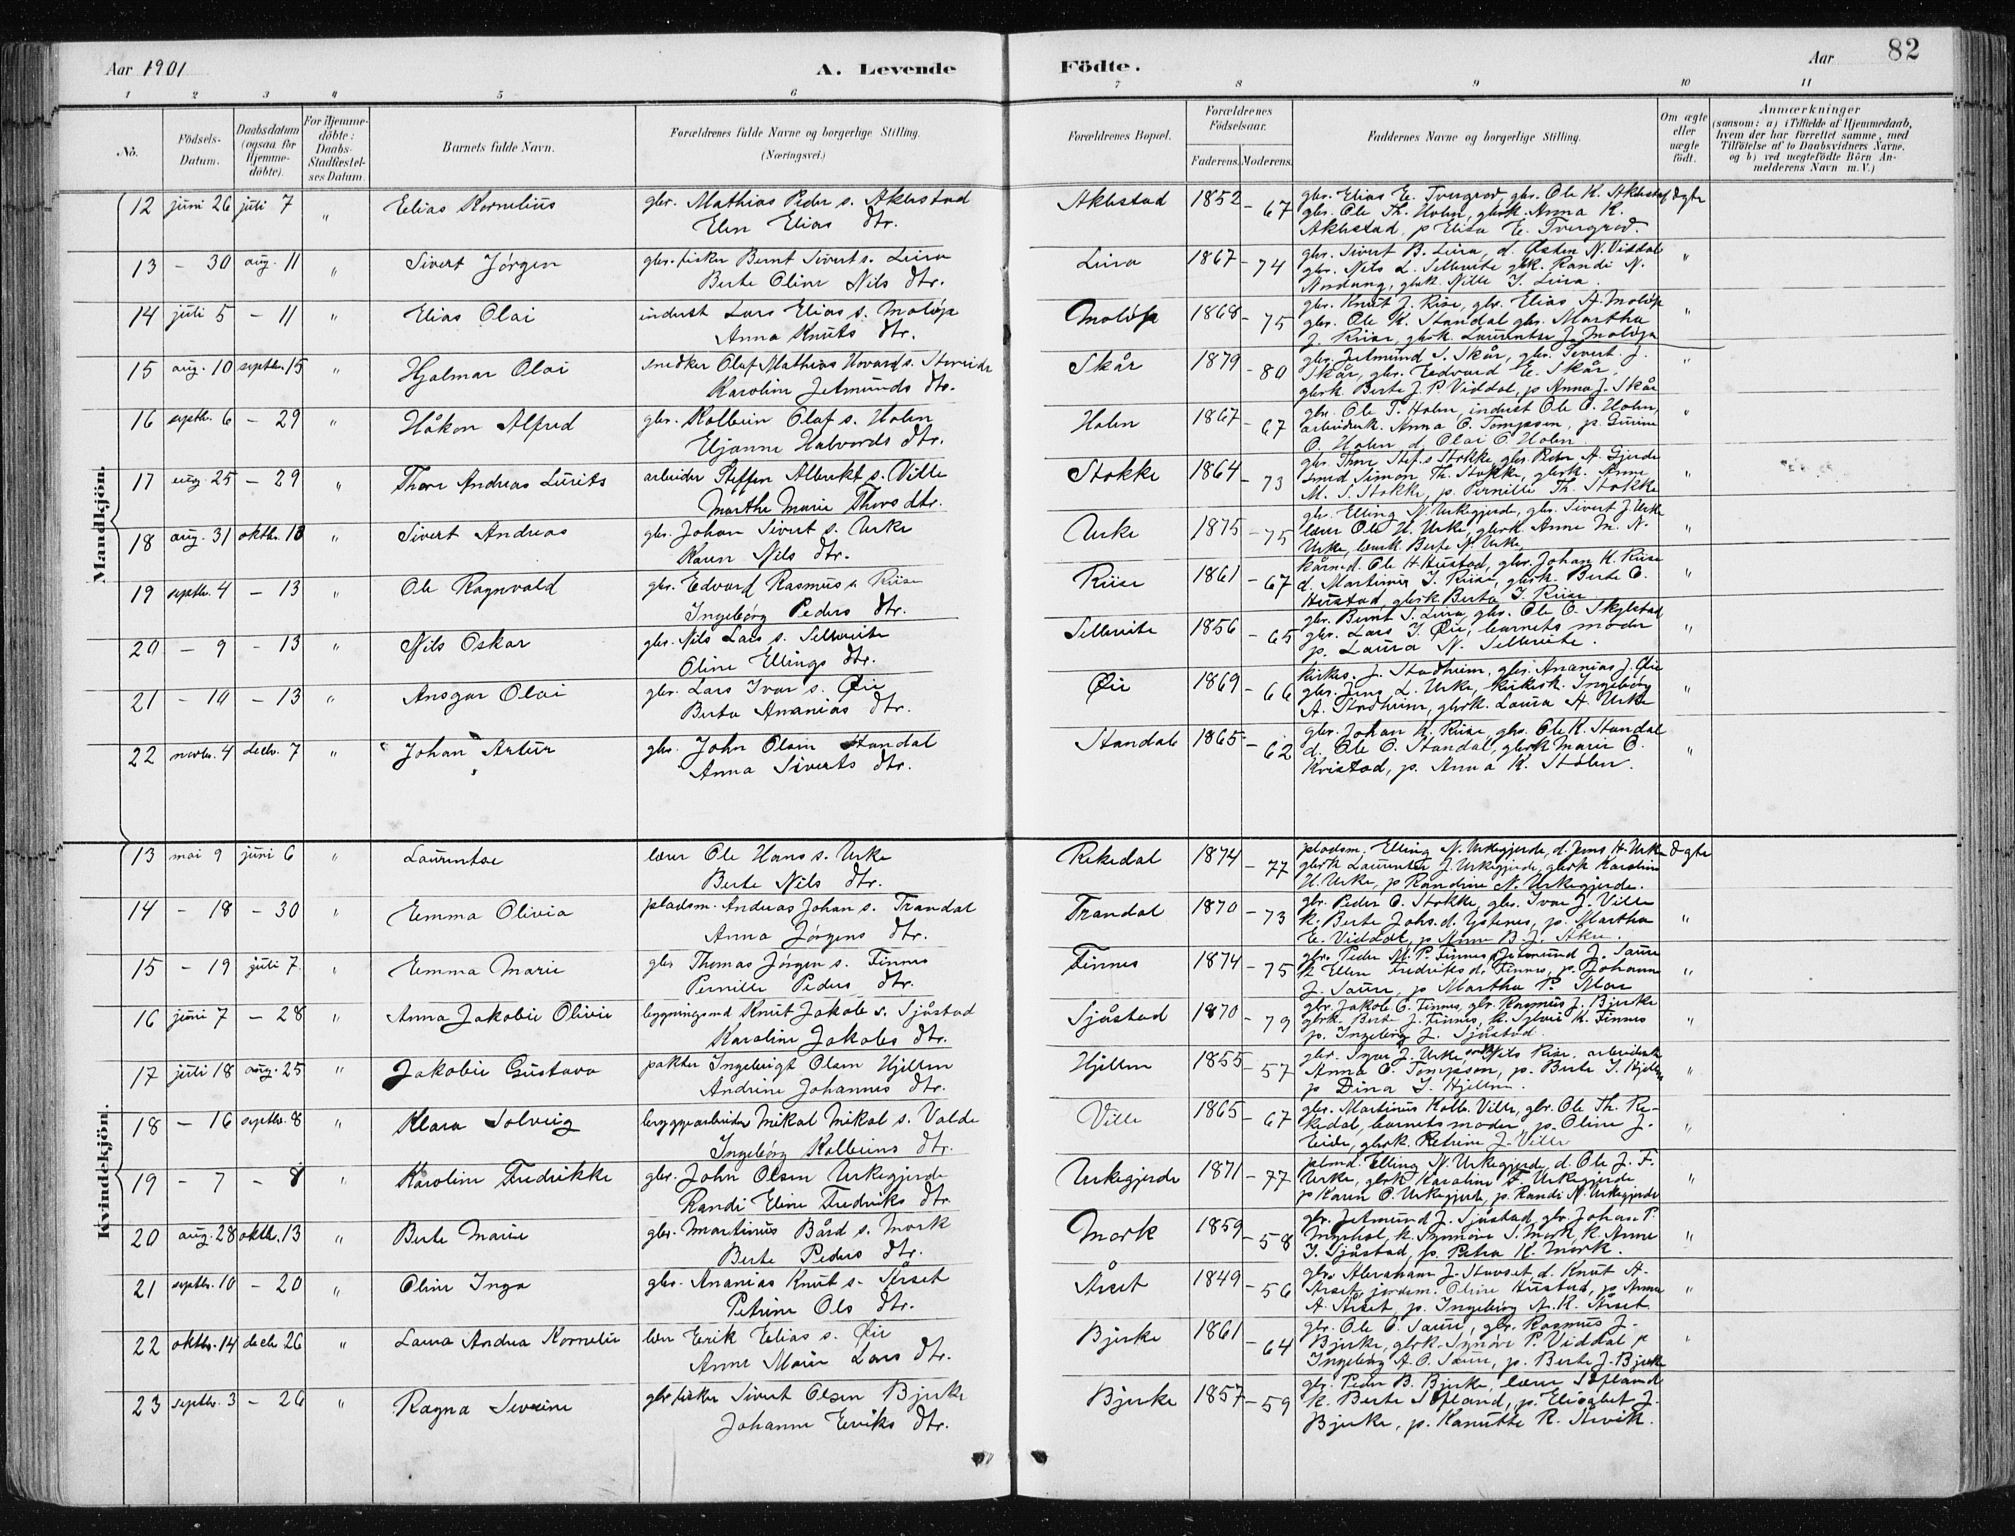 Aar 1901
A. Levende
Födte.
Aar
82
1 2 3 4 5 6 7 8 9 10 11
No.
Födsels-Datum.
Daabsdatum (ogsaa for Hjemme-döbte).
For Hjemme-döbte: Daabs-Stadfæstel-ses Datum.
Barnets fulde Navn.
Forældrenes fulde Navne og borgerlige Stilling. (Næringsvei.)
Forældrenes Bopæl.
Forældrenes Födselsaar.
Faderens. Moderens.
Faddernes Navne og borgerlige Stilling.
Om ægte eller uægte födt.
Anmærkninger
(saasom: a) i Tilfælde af Hjemmedaab, hvem der har forrettet samme, med Tilföielse af to Daabsvidners Navne, og b) ved uægtefödte Börn An-melderens Navn m. V.)
Mandkjön.
12 juni 26 juli 7 " Elias Kornelius gbr. Mathias Peder s. Aklestad Aklestad 1852 gbr. Elias E. Tvergrod, gbr. Ole K. Aklestad Ægte
Elen Elias dtr. - 67 gbr. Ole Th. Holen, gbrk. Anna K.
Aklestad, p Elisa E. Tvergrod.
13 - 30 aug. 11 " Sivert Jørgen gbr. fisker Bernt Siverts. Lira Lira 1867 gbr. Sivert B. Lira, d. Østen N. Viddal "
Berte Oline Nils dtr. - 74 gbr. Nils L. Sellereite gbk. Randi N.
Nordang, gbrk. Nille I. Lira.
14 juli 5 - 11 " Elias Olai inderst Lars Elias s. Moløp Moløp 1868 gbr. Knut J. Riise, gbr. Elias A. Moløp "
Anna Knuts dtr. - 75 gbr. Ole K. Standal gbr. Martha
J. Riise, gbrk. Laurentse J. Moløp
15 aug. 10 septbr. 15 " Hjalmar Olai snedker Olaf Mathias Havards. Skår 1879 gbr. Jetmund S. Skår, gbr. Sivert J. "
Karoline Jetmunds dtr. - 80 Skår, gbr. Edvard E. Skår,
gbrk. Berte J. P. Viddal, p Anna J. Skår
16 septbr. 6 - 29 " Håkon Alfred gbr. Kolbein Olaf s. Holen Holen 1867 gbr. Ole T. Holen, inderst Ole O. Holen, "
Eljanne Halvards dtr. - 67 arbeiderk. Anna O. Tompson, p. Gurine
O. Holen d. Olai O. Holen.
17 aug. 25 - 29 " Thore Andreas Lurits arbeider Steffen Albrekt s. Ville Stokke 1864 gbr. Thore Stef. s Stokke, gbr. Peder A. Gjerde "
Marthe Marie Thors dtr. - 73 smed Simon Th. Stokke, gbrk. Anne
M. S. Stokke, p. Pernille Th. Stokke
18 aug. 31 oktbr. 13 " Sivert Andreas gbr. Johan Sivert s. Urke Urke 1875 gbr. Elling N. Urkegjerde, gbr. Sivert J. Urke "
Karen Nils dtr. - 75 lærer Ole H. Urke, gbrk. Anne M. N.
Urke, lærerk. Berte N. Urke
19 septbr. 4 - 13 " Ole Ragnvald gbr. Edvard Rasmus s. Riise Riise 1861 kårmd. Ole H Hustad, gbr. Johan K. Riise "
Ingebörg Peders dtr. - 67 d. Martinus I. Riise, gbrk. Berte O.
Hustad, gbrk. Berte I. Riise
20 - 9 - 13 " Nils Oskar gbr. Nils Lars s. Sellereite Sellereite 1856 gbr. Bernt S. Lira, gbr. Ole O. Skylstad "
Oline Ellings dtr. - 65 gbr. Lars I. Øie, barnets moder
p. Laura N. Sellereite.
21 - 10 - 13 " Ansgar Olai gbr. Lars Ivar s. Øie Øie 1869 kirkes. J. Stadheim, gbr. Ananias J. Øie "
Berte Ananias dtr. - 66 gbr. Jens L. Urke, kirkesk. Ingebörg
A. Stadheim, gbrk. Laura A. Urke
22 novbr. 4 decbr. 7 " Johan Artur gbr. John Olsen Standal Standal 1865 gbr. Johan K. Riise, gbr. Ole K. Standal "
Anna Siverts dtr. - 62 d. Ole O. Standal, gbrk Maren O.
Kvistad, p. Anna K. Stölen.
Kvindekjön.
13 mai 9 juni 6 " Laurentse lærer Ole Hans s. Urke Rekedal 1874 pladsm. Elling N. Urkegjerde, d. Jens H. Urke Ægte
Berte Nils dtr. - 77 gbrk Laurentse J. Urkegjerde, gbrk Karoline
H. Urke, p Randine N. Urkegjerde.
14 - 18 - 30 " Emma Olivia pladsm. Andreas Johan s. Trandal Trandal 1870 gbr. Peder O. Stokke, gbr. Ivar J. Ville "
Anna Jørgens dtr. - 73 k. Berte Johs. d. Ystenes, p. Martha
E. Viddal, p Anne B. J. Åkre.
15 - 19 juli 7. " Emma Marie gbr Thomas Jørgen s. Finnes Finnes 1874 gbr. Peder M. P. Finnes, Jetmund J. Saure "
Pernille Peders dtr. - 75 k Ellen Fredriks d. Finnes, p. Johanna
J. Saure, p Martha P. Mar
16 juni 7 - 28 " Anna Jakobie Olivie bygningsmd Knut Jakob s. Sjåstad Sjåstad 1870 gbr. Jakob O. Finnes, gbr. Rasmus J. Bjerke "
Karoline Jakobs dtr. - 79 gbrk. Berte J. Finnes, k. Sylvie K. Finnes
p. Ingebörg J. Sjåstad.
17 juli 18 aug. 25 " Jakobie Gustava pakter Ingebrigt Olsen Hjellen Hjellen 1855 gbr. Ivar J. Urke, Nils Riise. arbeidersk "
Andrine Johannes dtr. - 57 Anna O. Tompson, p. Berte I. Hjellen
p Dina I. Hjellen.
18 - 16 septbr. 8 " Klara Solveig byggearbeider Mikal Mikal s. Valde Ville 1865 gbr. Martinus Kolb. Ville, gbr. Ole Th. Re-
Ingebörg Kolbeins dtr. - 67 kedal, barnets moder, p. Oline J. "
Eide, gbrk. Petrine J. Ville
19 - 7 - 8 " Karoline Fredrikke gbr. John Olsen Urkegjerde Urkegjerde 1871 plmd. Elling N. Urkegjerde, d. Ole J. F. "
Randi Eline Fredriks dtr - 77 Urke, gbrk Karoline F. Urkegjerde
p Karen O. Urkegjerde, p. Randi N. Urkegjerde
20 aug. 28 oktbr. 13 " Berte Marie gbr. Martinus Bård s. Mork Mork 1859 gbr. Jetmund J. Sjåstad, gbr. Johan P.
Berte Peders dtr. - 58 Myhol, k. Synnøve S. Mork, k. Anne "
I. Sjåstad, p. Petra K. Mork.
21 septbr. 10 - 20 " Oline Inga gbr. Ananias Knut s. Årset Årset 1849 gbr. Abraham J. Stavset, d. Knut A.
Petrine Ols dtr. - 56 Årset, jordem. Oline Hustad, p. Anna "
A. Årset, p. Ingebörg A. K. Årset.
22 oktbr. 14 decbr. 26 " Laura Andrea Kornelie lærer Erik Elias s. Øie Bjerke 1861 gbr. Ole O. Saure, gbr. Rasmus J. "
Anne Marie Lars dtr. - 64 Bjerke, gbrk. Synøve P. Viddal, p
Ingebörg A. O. Saure, p. Berte J. Bjerke
23 septbr. 3 - 26 " Ragna Severine gbr fisker Sivert Olsen Bjerke Bjerke 1857 gbr. Peder B. Bjerke, lærer Sefland
Johanne Eriks dtr. - 59 k. Berte Sefland, p. Elisabet J.
Bjerke, p. Kanutte R. Årvik.